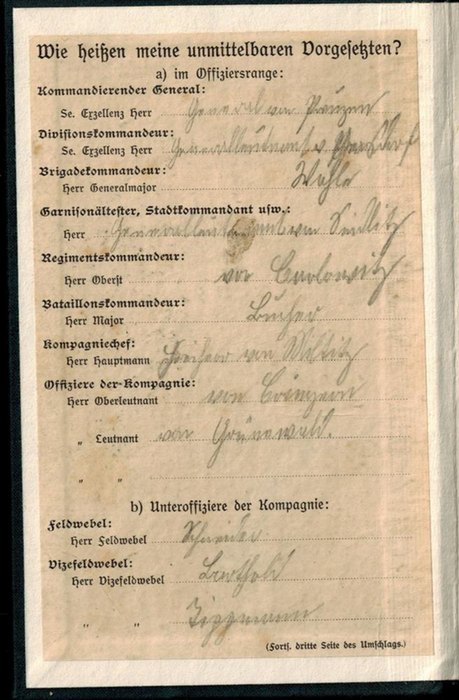 Wie heißen meine unmittelbaren Vorgesetzten?
a) im Offiziersrange:
Kommandierender General:
Se. Exzellenz Herr General von
Divisionskommandeur:
Se. Exzellenz Herr Generalleutnant v.
Brigadekommandeur:
Herr Generalmajor Wahle
Garnisonältester, Stadtkommandant usw.:
Herr Generalleutnant von Seidlitz
Regimentskommandeur:
Herr Oberst von Carlowitz
Bataillonskommandeur:
Herr Major Bucher
Kompagniechef:
Herr Hauptmann Freiherr von Miltitz
Offiziere der Kompagnie:
Herr Oberleutnant von
„ Leutnant von Grünewald.
„ „
b) Unteroffiziere der Kompagnie:
Feldwebel:
Herr Feldwebel Schneider
Vizefeldwebel:
Herr Vizefeldwebel Berthold
„ „
(Forts. dritte Seite des Umschlags.)